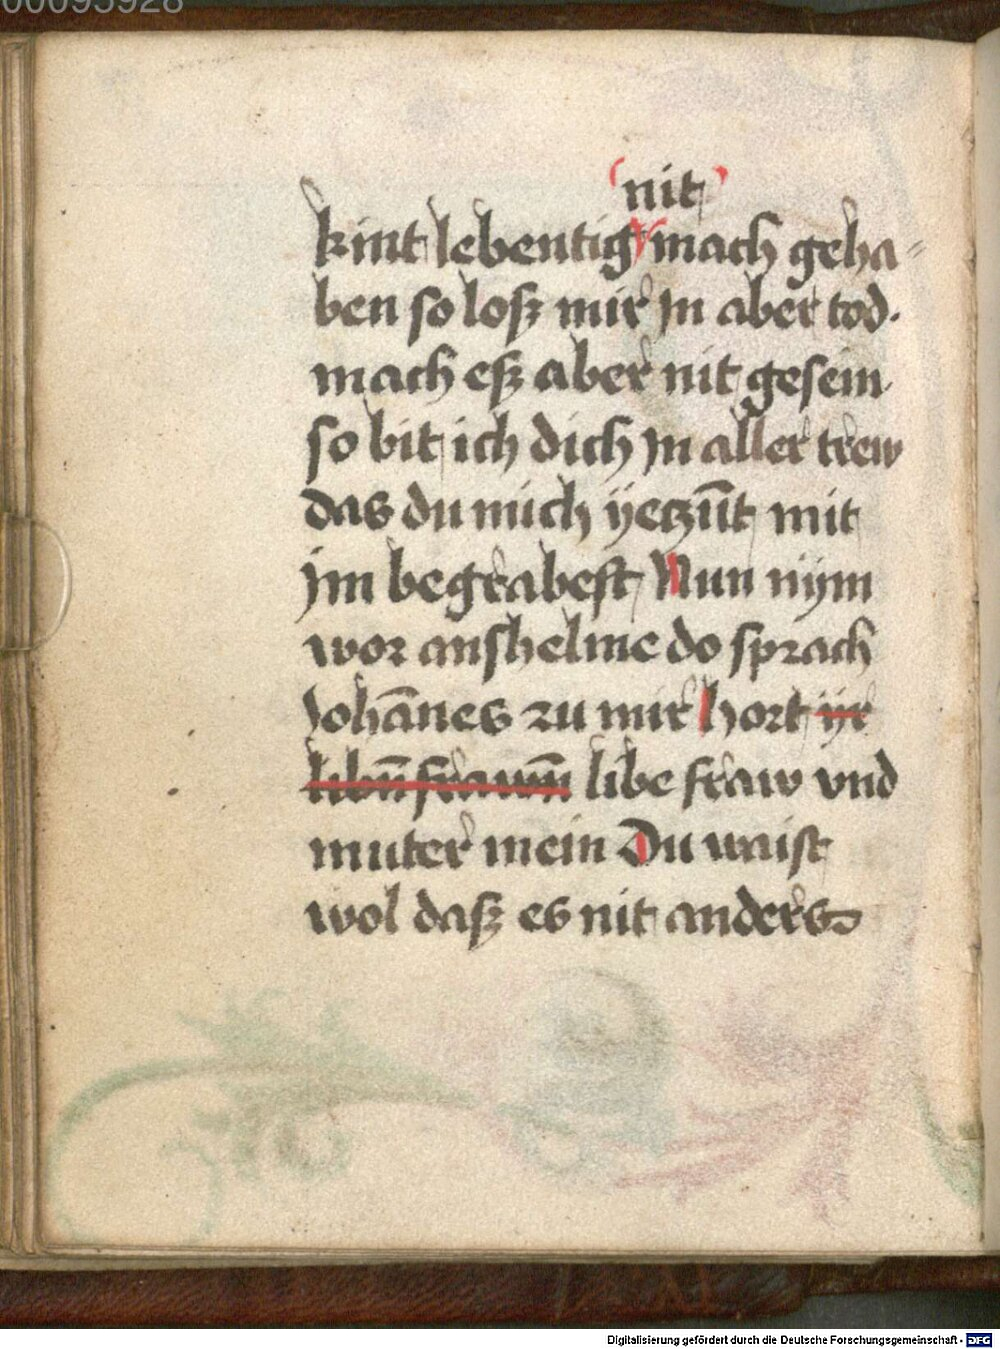 00095928
nit
kint lebentig mach geha=
ben so losz mir jn aber tod.
mach esz aber nit gesein.
so bit ich dich jn aller trew
das du mich yeczūt mit
jm begrabest Nun nym
wor anshelme do sprach
Johānes zu mir hort yr
libēn frawēn libe fraw vnd
muter mein Du waist
wol dasz es nit anders
Digitalisierung gefördert durch die Deutsche Forschungsgemeinschaft - DFG